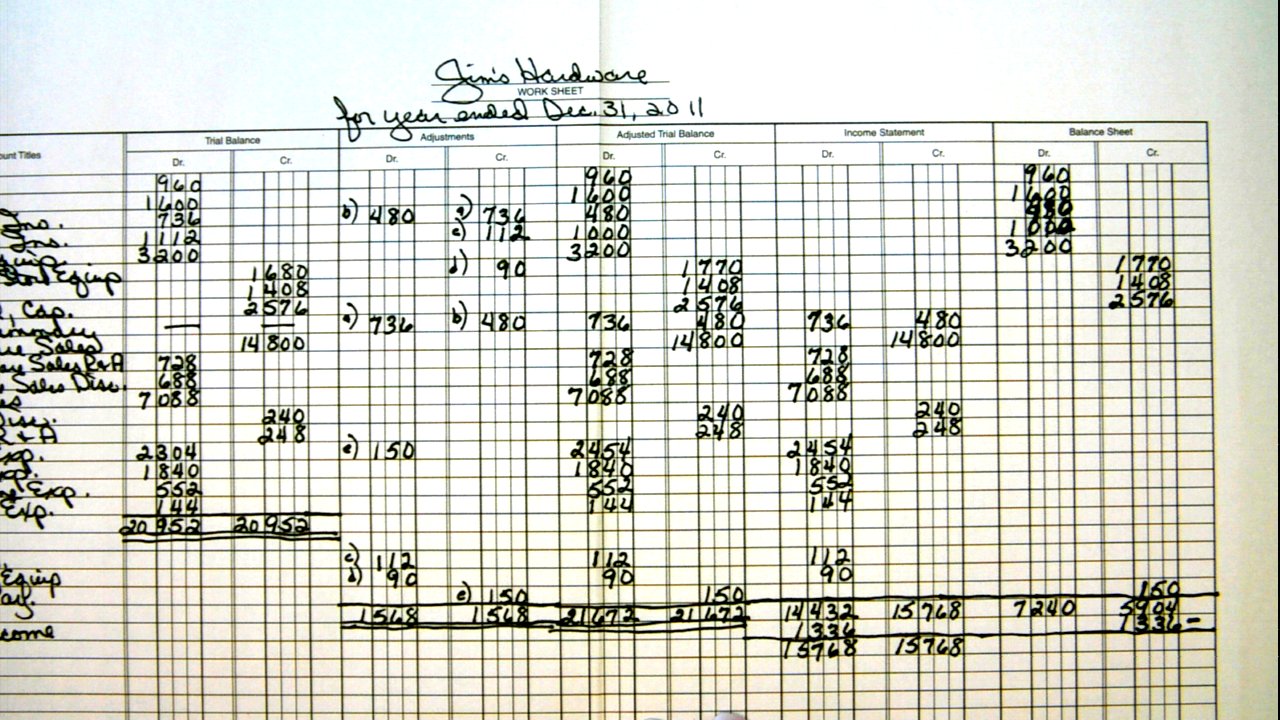 Jim's Hardware
WORK SHEET
for year ended Dec. 31, 2011
unt Titles Trial Balance Adjustments Adjusted Trial Balance Income Statement Balance Sheet
Dr. Cr. Dr. Cr. Dr. Cr. Dr. Cr. Dr. Cr.
960 960 960
1600 1600 1600
Inv. 736 b) 480 a) 736 480
Ins. 1112 c) 112 1000 1000
Equip. 3200 3200 3200
Store Equip 1680 d) 90 1770 1770
1408 1408 1408
, Cap. 2576 2576 2576
— — a) 736 b) 480 736 480 736 480
Sales 14800 14800 14800
Sales R+A 728 728 728
Sales Disc. 688 688 688
es 7088 7088 7088
Disc. 240 240 240
R + A 248 248 248
Exp. 2304 e) 150 2454 2454
Exp. 1840 1840 1840
Exp. 552 552 552
Exp. 144 144 144
20952 20952
c) 112 112 112
Equip d) 90 90 90
ay. e) 150 150 150
1568 1568 21672 21672 14432 15768 7240 5904
come 1336 1336 –
15768 15768